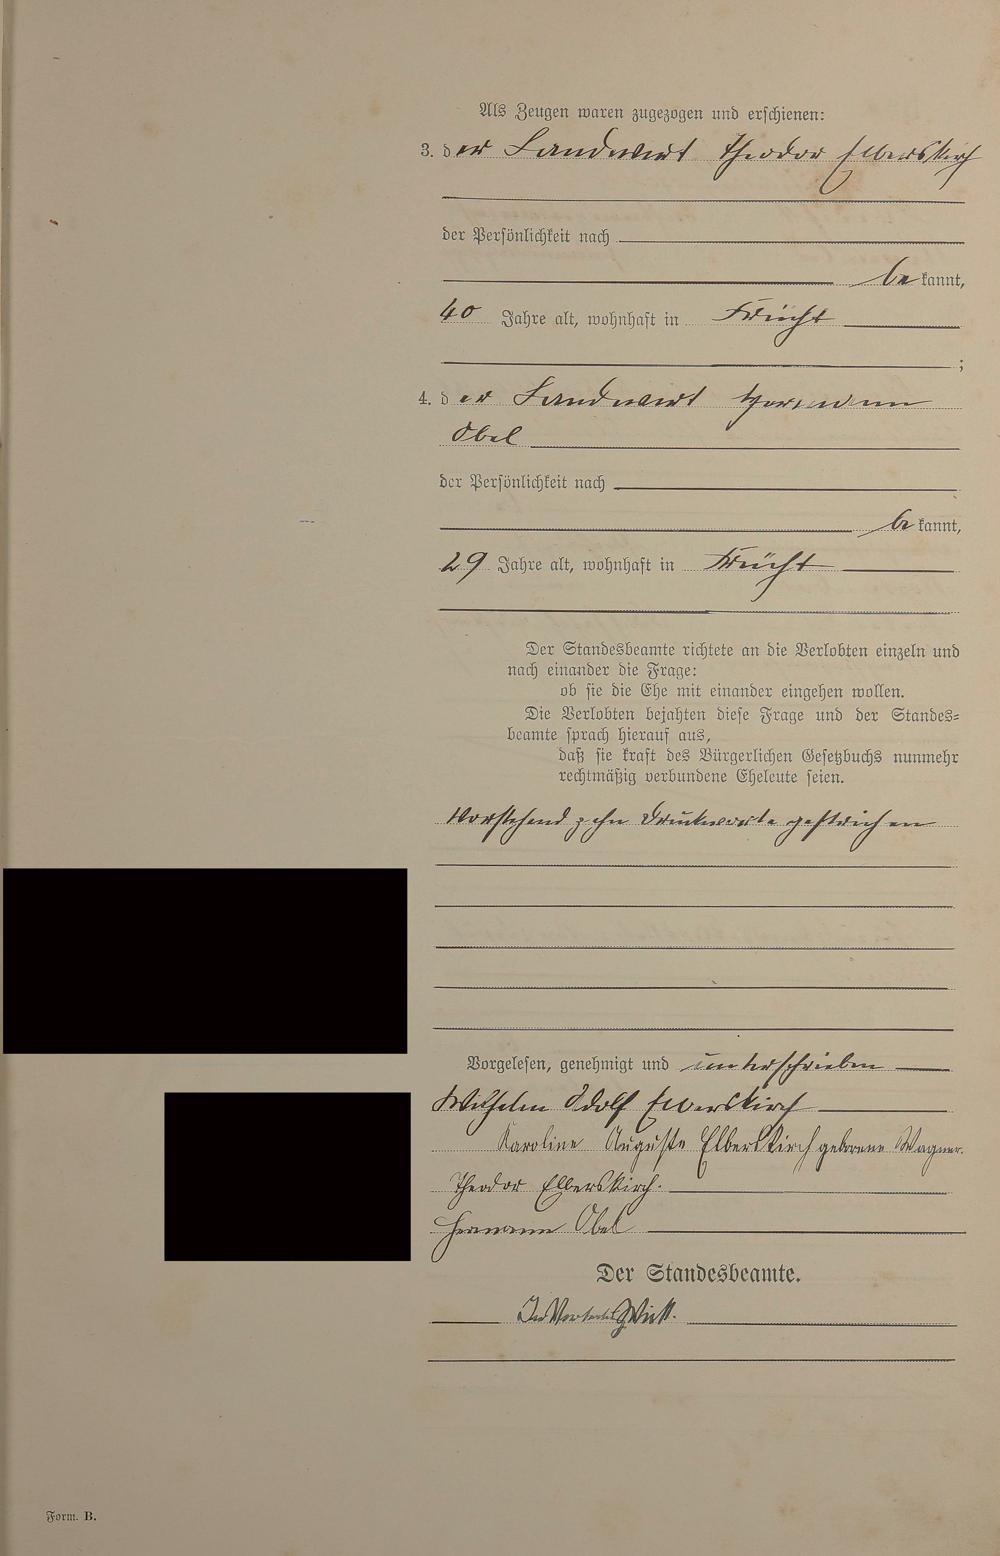 Als Zeugen waren zugezogen und erschienen:
3. der Landwirt Theodor Elberskirch
der Persönlichkeit nach
bekannt,
40 Jahre alt, wohnhaft in Frücht
;
4. der Landwirt Hermann
Obel
der Persönlichkeit nach
bekannt,
29 Jahre alt, wohnhaft in Frücht
Der Standesbeamte richtete an die Verlobten einzeln und
nach einander die Frage:
ob sie die Ehe mit einander eingehen wollen.
Die Verlobten bejahten diese Frage und der Standes=
beamte sprach hierauf aus,
daß sie kraft des Bürgerlichen Gesetzbuchs nunmehr
rechtmäßig verbundene Eheleute seien.
Vorstehend zehn Druckworte gestrichen
Vorgelesen, genehmigt und unterschrieben
Wilhelm Adolf Elberskirch
Karoline Auguste Elberskirch geborene Wagner.
Theodor Elberskirch.
Hermann Obel
Der Standesbeamte.
In Vertretung
Form. B.